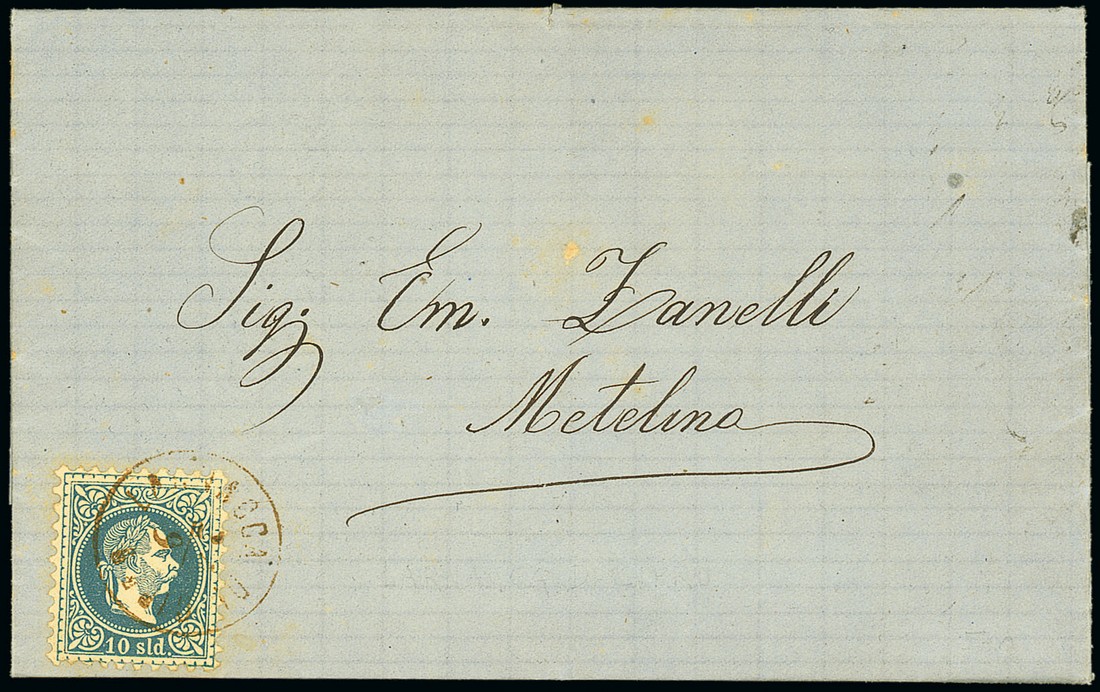 Sig: Em. Zanelli
Metelino
10 sld.